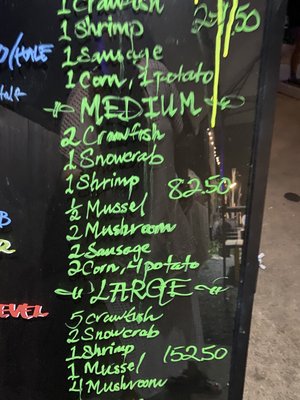 1 Crawfish
1 Shrimp
1 Sausage
1 Corn, 1 potato
MEDIUM
2 Crawfish
1 Snowcrab
1 Shrimp 8250
½ Mussel
2 Mushroom
2 Sausage
2 Corn, 4 potato
LARGE
5 Crawfish
2 Snowcrab
1 Shrimp 15250
1 Mussel
4 Mushroom